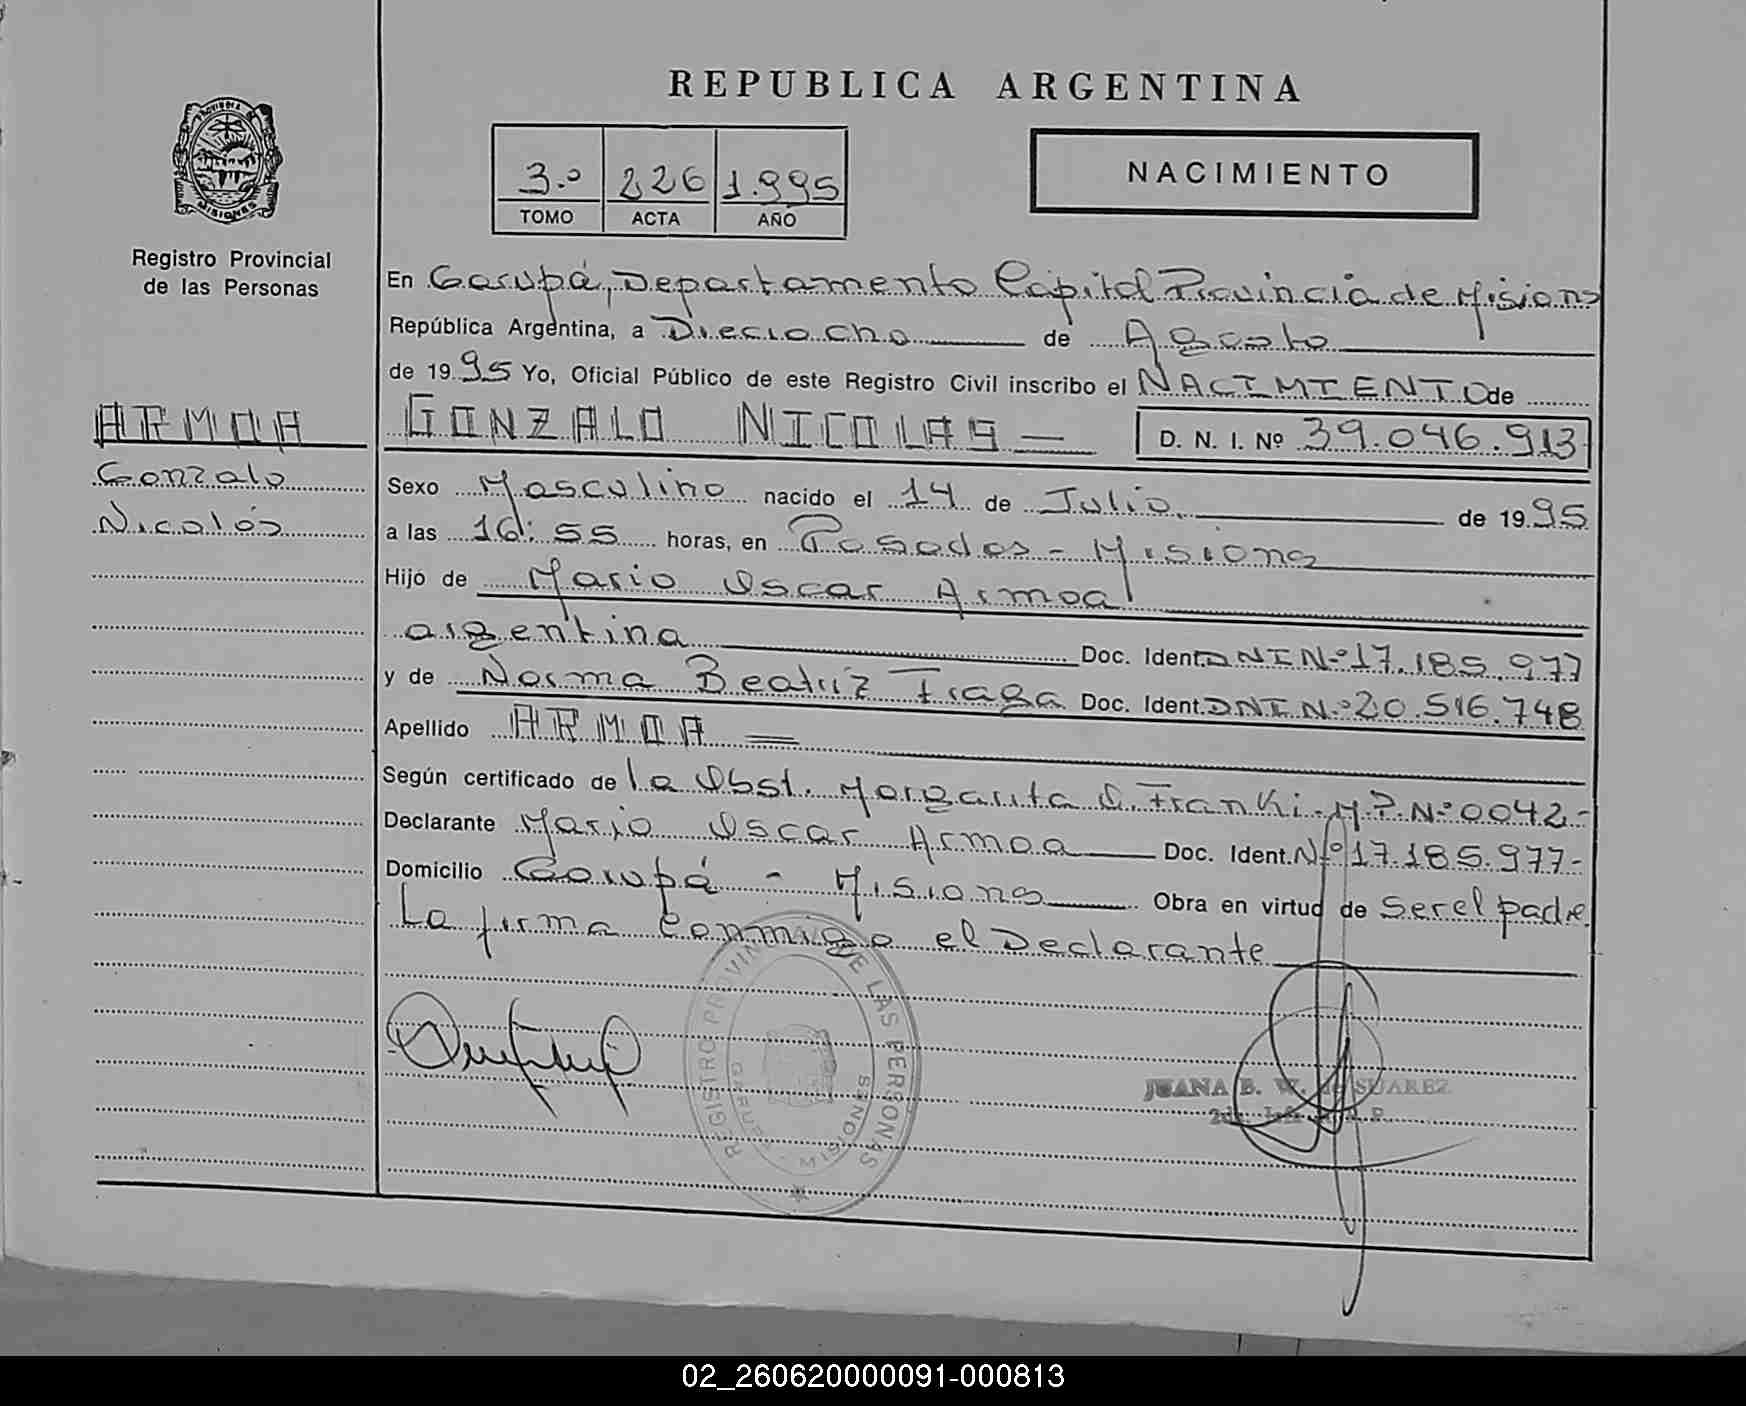 REPUBLICA ARGENTINA
3.º 226 1.995
TOMO ACTA AÑO
NACIMIENTO
PROVINCIA DE
MISIONES
Registro Provincial
de las Personas
En Garupá, Departamento Capital Provincia de Misiones
República Argentina, a Dieciocho de Agosto
de 1995 Yo, Oficial Público de este Registro Civil inscribo el NACIMIENTO de
ARMOA
Gonzalo
Nicolás
GONZALO NICOLAS
D. N. I. Nº 39.046.913
Sexo Masculino nacido el 14 de Julio. de 1995
a las 16:55 horas, en Posadas - Misiones
Hijo de Mario Oscar Armoa
argentina Doc. Ident. DNI Nº 17.185.977
y de Norma Beatriz Fraga Doc. Ident. DNI N.º 20.516.748
Apellido ARMOA =
Según certificado de la Obst. Margarita O. Franki - M.P. Nº 0042-
Declarante Mario Oscar Armoa Doc. Ident. Nº 17.185.977-
Domicilio Garupá - Misiones Obra en virtud de Ser el padre.
La firma conmigo el Declarante
REGISTRO PROVINCIAL DE LAS PERSONAS
GARUPA - MISIONES
JUANA B. W. de SUAREZ
02_260620000091-000813